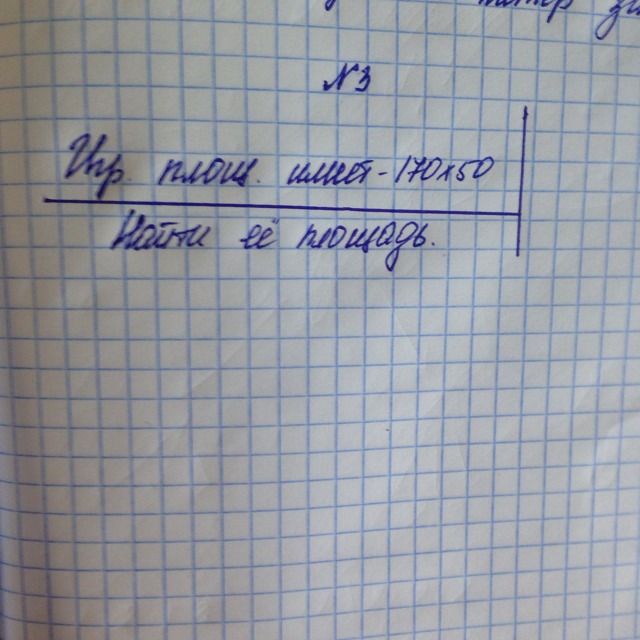 №3
Игр. площ. имеет - 170х50
Найти её площадь.